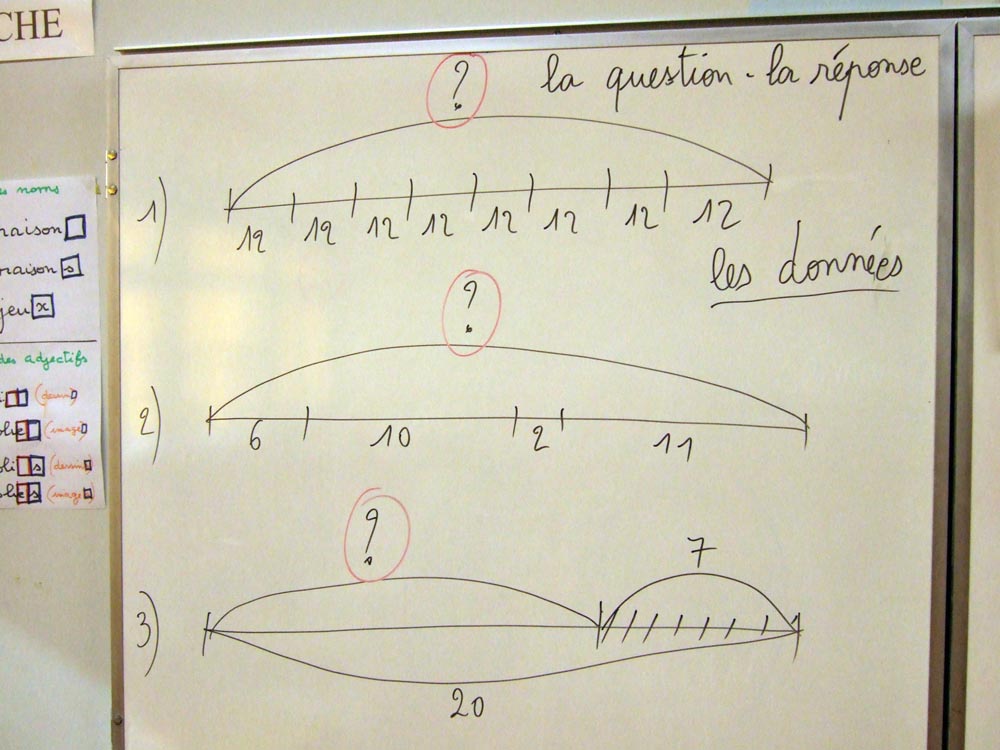 CHE
la question - la réponse
?
1)
12 12 12 12 12 12 12 12
les données
?
2)
6 10 2 11
?
7
3)
20
noms
jeu x
des adjectifs
(dessin)
(image)
s (dessin)
(image)